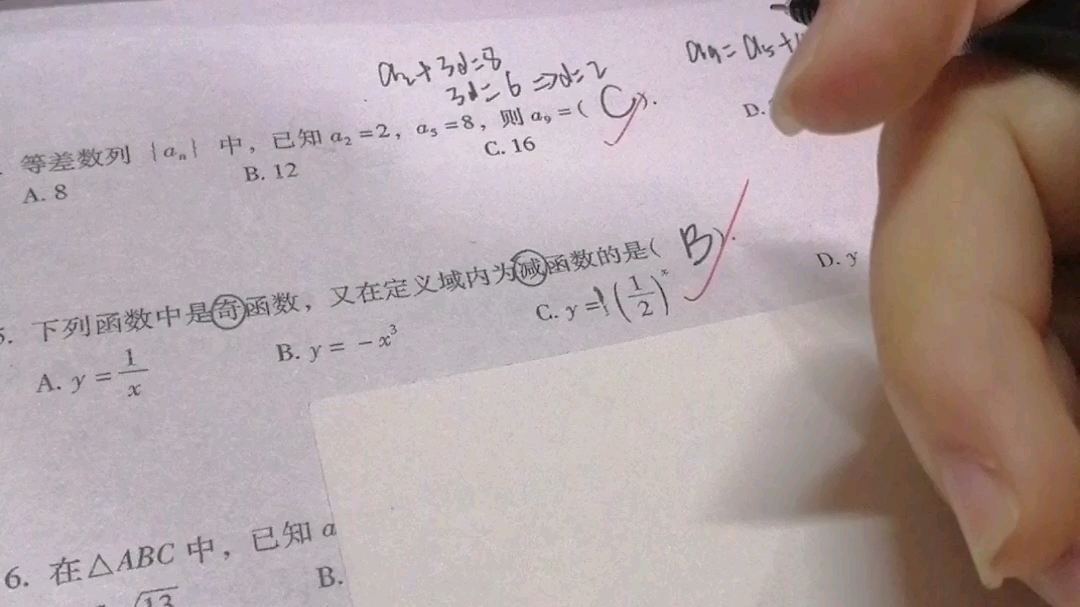 a₂+3d=8
3d=6⇒d=2
a₉=a₅+
等差数列 {aₙ} 中，已知 a₂=2，a₅=8，则 a₉=( C ).
A. 8 B. 12 C. 16 D.
5. 下列函数中是奇函数，又在定义域内为减函数的是( B ).
A. y=1/x B. y=-x³ C. y=(1/2)ˣ D. y
6. 在△ABC 中，已知 a
√13 B.